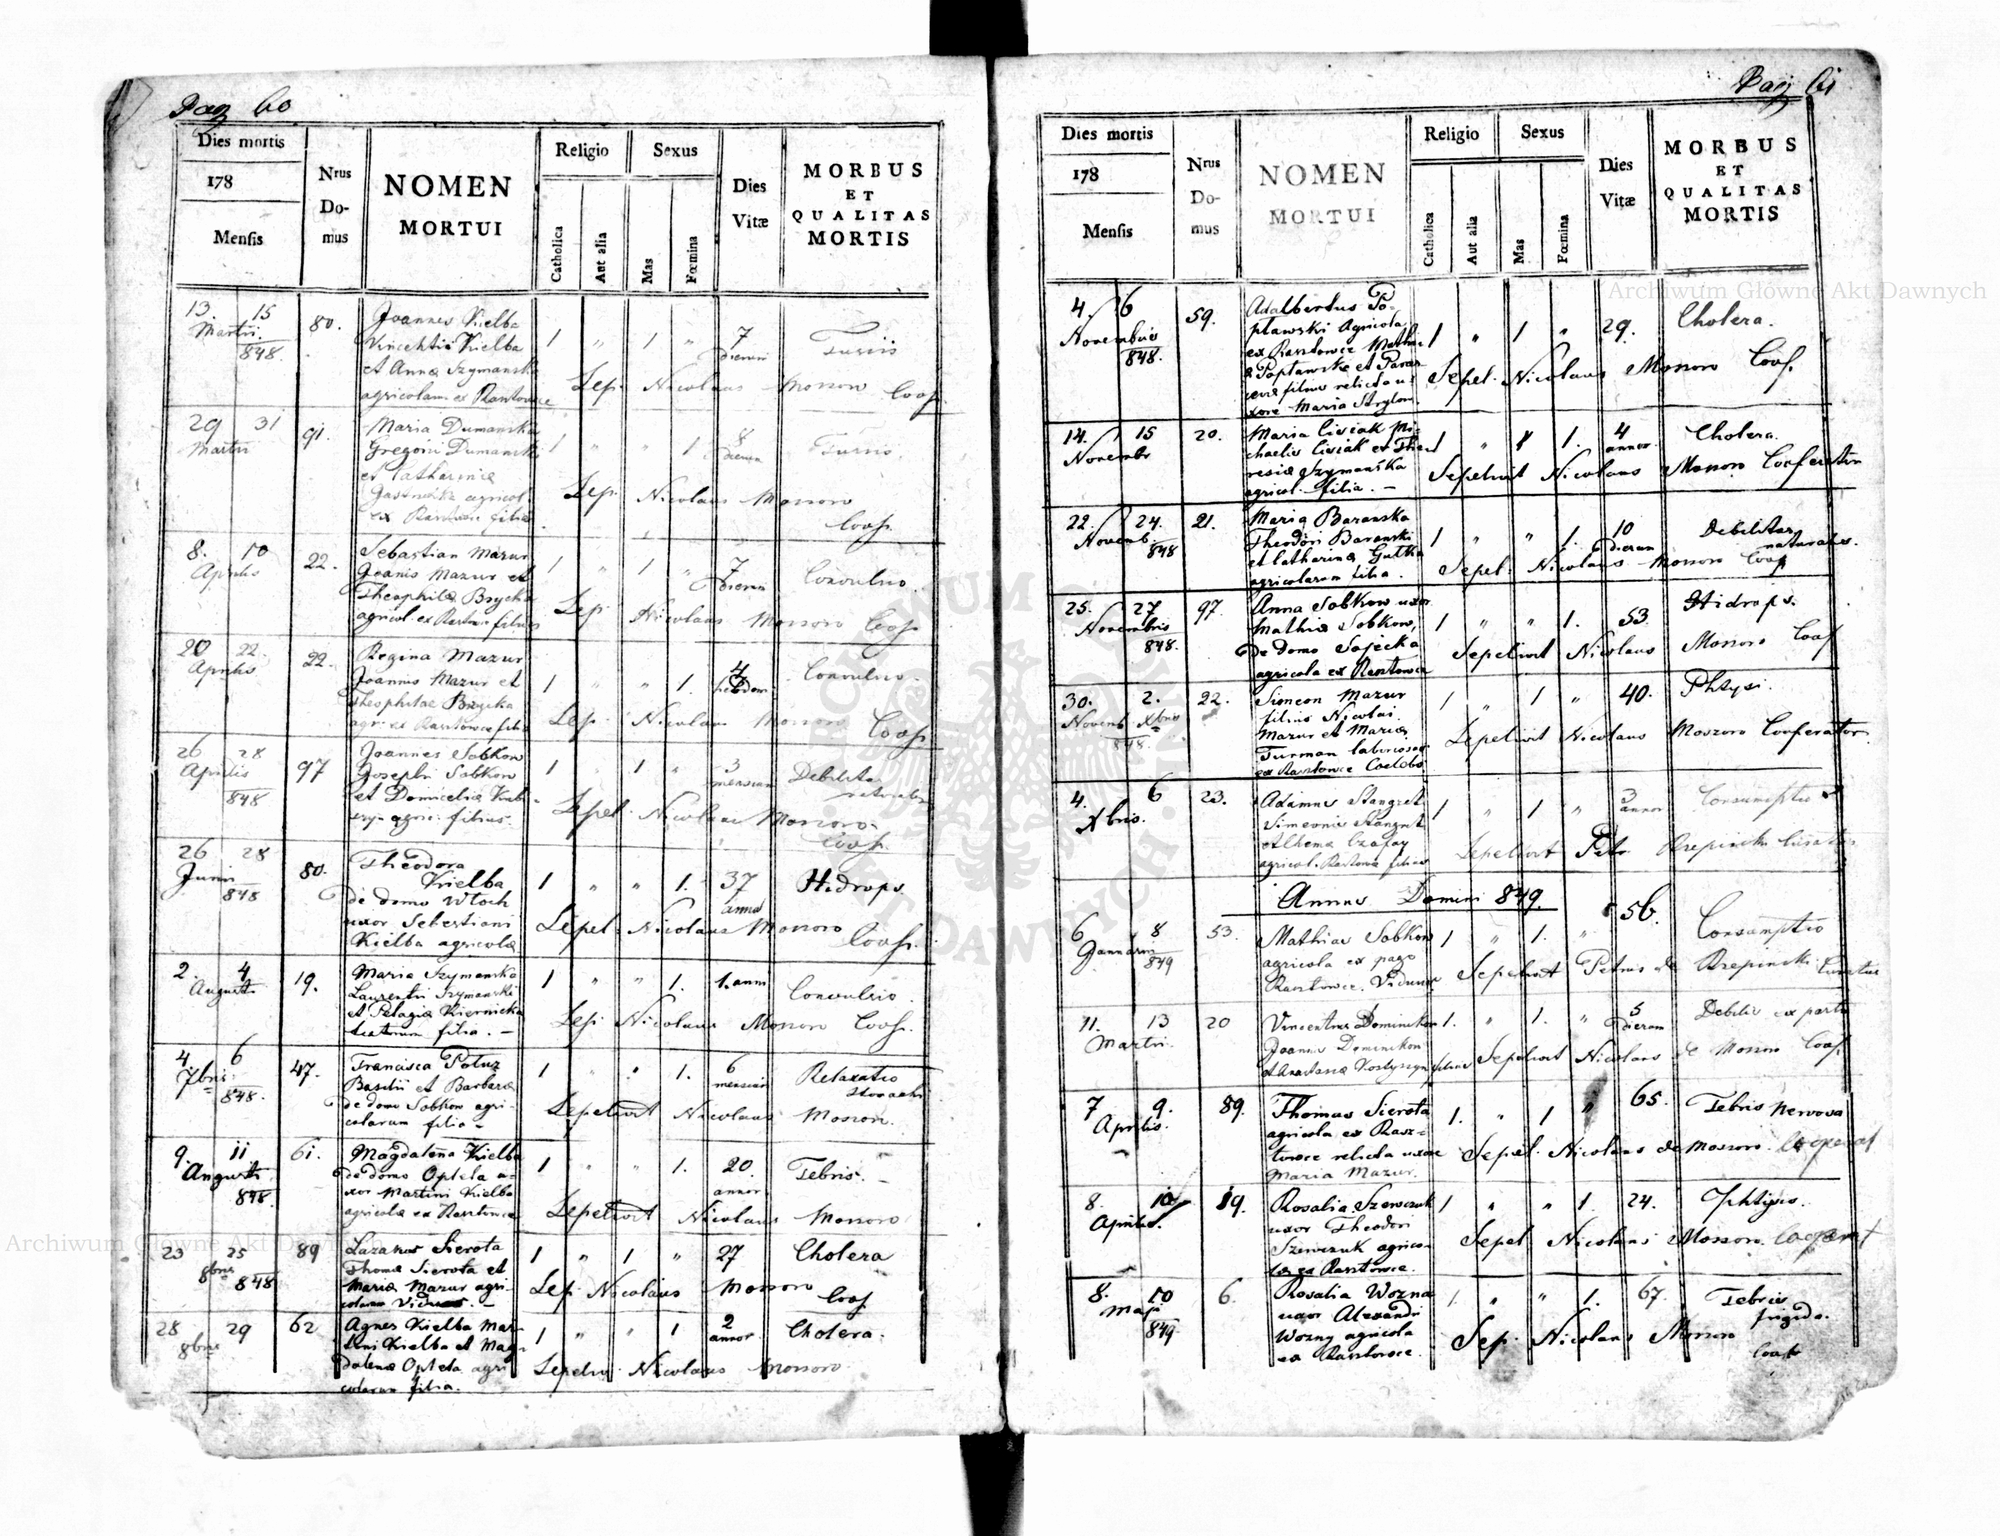 Pag 60
Dies mortis
178
Mensis
Nrus
Do-
mus
NOMEN
MORTUI
Religio
Catholica
Aut alia
Sexus
Mas
Fœmina
Dies
Vitæ
MORBUS
ET
QUALITAS
MORTIS
13. 15
Martii
848.
80.
Joannes Kielba
Vincentii Kielba
et Anna Szymanska
agricolarum ex Rasztowce
1 " 1 "
7
dierum
Sep. Nicolaus Mossoro Coop.
29 31
Martii
91.
Maria Dumanska
Gregorii Dumanski
et Catharinæ
agricol.
ex Rasztowce filia
1 " " 1
8
dierum
Sep. Nicolaus Mossoro
Coop.
8. 10
Aprilis
22.
Sebastian Mazur
Joanis Mazur et
Theophilæ Brycka
agricol. ex Rasztow: filius
1 " 1 "
7
dierum
Convulsio.
Sep. Nicolaus Mossoro Coop.
20 22.
Aprilis
22.
Regina Mazur
Joannis Mazur et
Theophilae Brycka
agri: ex Rasztowce filia
1 " " 1.
4
hebdom:
Convulsio.
Sep. Nicolaus Mossoro
Coop.
26 28
Aprilis
848
97
Joannes Sobkow
Josephi Sobkow
et Domicella
agric: filius.
1 " 1 "
3
mensium
Debilitas
naturalis
Sepel. Nicolaus Mossoro.
Coop.
26 28
Junii
848
80.
Theodora
Kielba
de domo Wloch
uxor Sebestiani
Kielba agricolæ
1 " " 1.
37
anno
Hidrops.
Sepel. Nicolaus Mossoro
Coop.
2. 4
Augusti
19.
Maria Szymanska
Laurentii Szymanski
et Pelagiæ Kiernicka
filia. —
1 " " 1.
1. anni
Convulsio.
Sep. Nicolaus Mossoro Coop.
4 6
7bris
848.
47.
Francisca Potuz
Basilii et Barbaræ
de domo Sobkow agri-
colarum filia —
1 " " 1.
6
mensium
Relaxatio
stomachi
Sepelivit Nicolaus Mossoro.
9. 11
Augusti
848.
61.
Magdalena Kielba
de domo Optela u-
xor Martini Kielba
agricolæ ex Rasztowce
1 " " 1.
20
annor
Febris. —
Sepelivit Nicolaus Mossoro
23 25
8bris
848
89
Lazarus Sierota
Thomæ Sierota et
Mariæ Mazur agri-
colarum Viduus. —
1 " 1 "
27
Cholera
Sep. Nicolaus Mossoro
Coop
28 29
8bris
62
Agnes Kielba Mar-
tini Kielba et Mag-
dalenæ Optela agri
colarum filia.
1 " " 1
2
annor.
Cholera.
Sepeliv. Nicolaus Mossoro.
Pag 61
Dies mortis
178
Mensis
Nrus
Do-
mus
NOMEN
MORTUI
Religio
Catholica
Aut alia
Sexus
Mas
Fœmina
Dies
Vitæ
MORBUS
ET
QUALITAS
MORTIS
4. 6
Novembris
848.
59.
Adalbertus Po-
plawski Agricola
ex Rasztowce Mathi-
æ Poplawski et
filius relicta u-
xore Maria
1 " 1 "
29.
Cholera.
Sepel. Nicolaus Mossoro Coop.
14. 15
Novembr
20.
Maria Cisiak Mi-
chaelis Cisiak et The-
resiæ Szymanska
agricol. filia. —
1 " 1.
4
annor.
Cholera.
Sepelivit Nicolaus Mossoro Cooperator
22. 24.
Novemb.
848
21.
Maria Baranska
Theodori Baranski
et Catharinæ Gutka
agricolarum filia.
1 " " 1.
10
dierum
Debilitas
naturalis.
Sepel. Nicolaus Mossoro Coop
25. 27
Novembris
848.
97.
Anna Sobkow uxor
Mathiæ Sobkow,
de domo Sajecka
agricola ex Rasztowce
1 " " 1.
53.
Hidrops.
Sepelivit Nicolaus Mossoro Coop
30. 2.
Novemb Xbris
848.
22.
Simeon Mazur
filius Nicolai
Mazur et Mariæ
Furman laboriosor
ex Rasztowce Coelebs
1 " 1 "
40.
Phtysi.
Sepelivit Nicolaus Moszoro Cooperator
4. 6
Xbris.
23.
Adamus Stangret
Simeonis Stangret
et Czafay
agricol. Rasztowce filius
1 " 1 "
3
annor
Consumptio
Sepelivit Petr Rzepinski Curator
Annus Domini 849.
6 8
Januarii
849
53.
Mathias Sobkow
agricola ex pago
Rasztowce. Viduus
1 " 1. "
56.
Consumptio
Sepelivit Petrus de Rzepinski Curatus
11. 13
Martii.
20
Vincentius Dominikow
Joannis Dominikow
et Anastasiæ Kostyszyn filius
1. " 1. "
5
dierum
Debilis ex partu
Sepelivit Nicolaus de Mossoro Coop.
7 9.
Aprilis.
89.
Thomas Sierota
agricola ex Rasz-
towce relicta uxore
Maria Mazur.
1. " 1 "
65.
Febris Nervosa
Sepel. Nicolaus de Mossoro. Cooperat
8. 10
Aprilis.
19.
Rosalia Szewczuk
uxor Theodori
Szewczuk agrico-
læ ex Rasztowce.
1 " " 1.
24.
Phtysis.
Sepel Nicolaus Mossoro. Cooperat
8. 10
Maji
849.
6.
Rosalia Wozna
uxor Alexandri
Wozny agricola
ex Rasztowce.
1. " " 1.
67.
Febris
frigida.
Sep. Nicolaus Mossoro
Coop
Archiwum Główne Akt Dawnych
Archiwum Główne Akt Dawnych